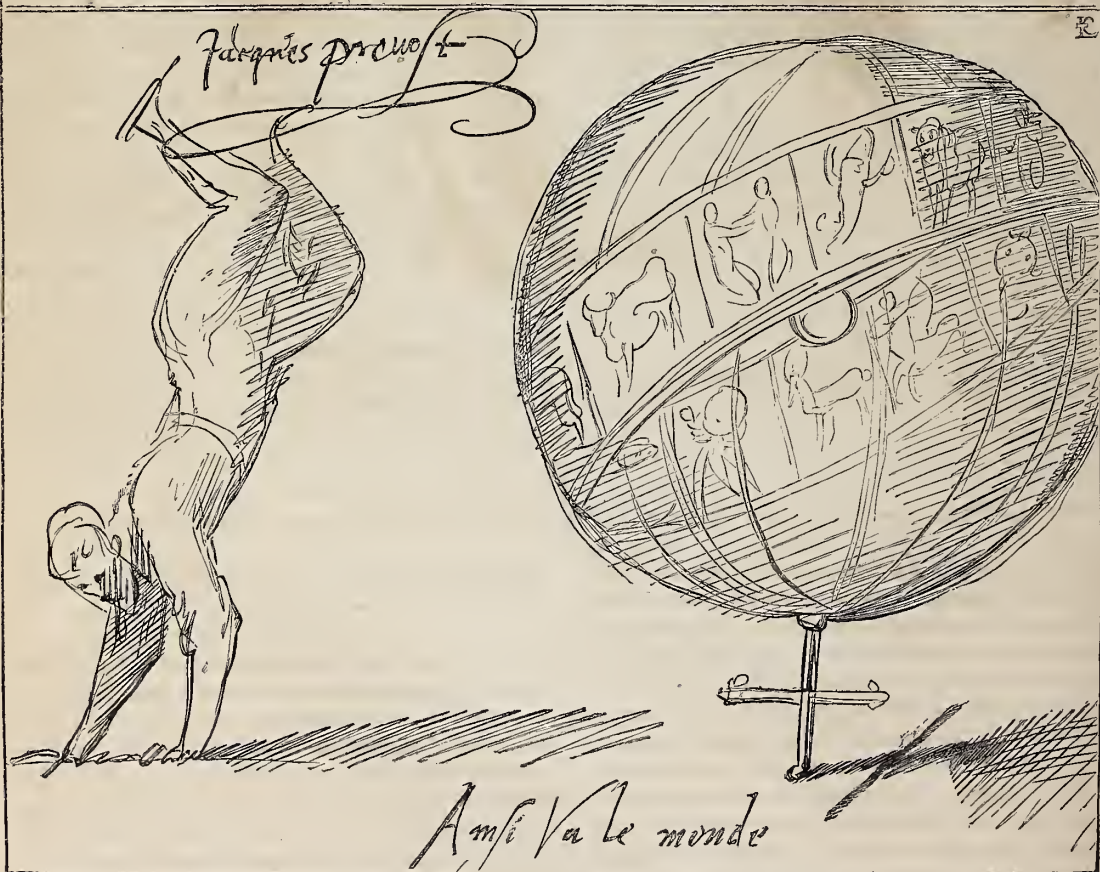 Jacques prevost
Ainsi Va le monde